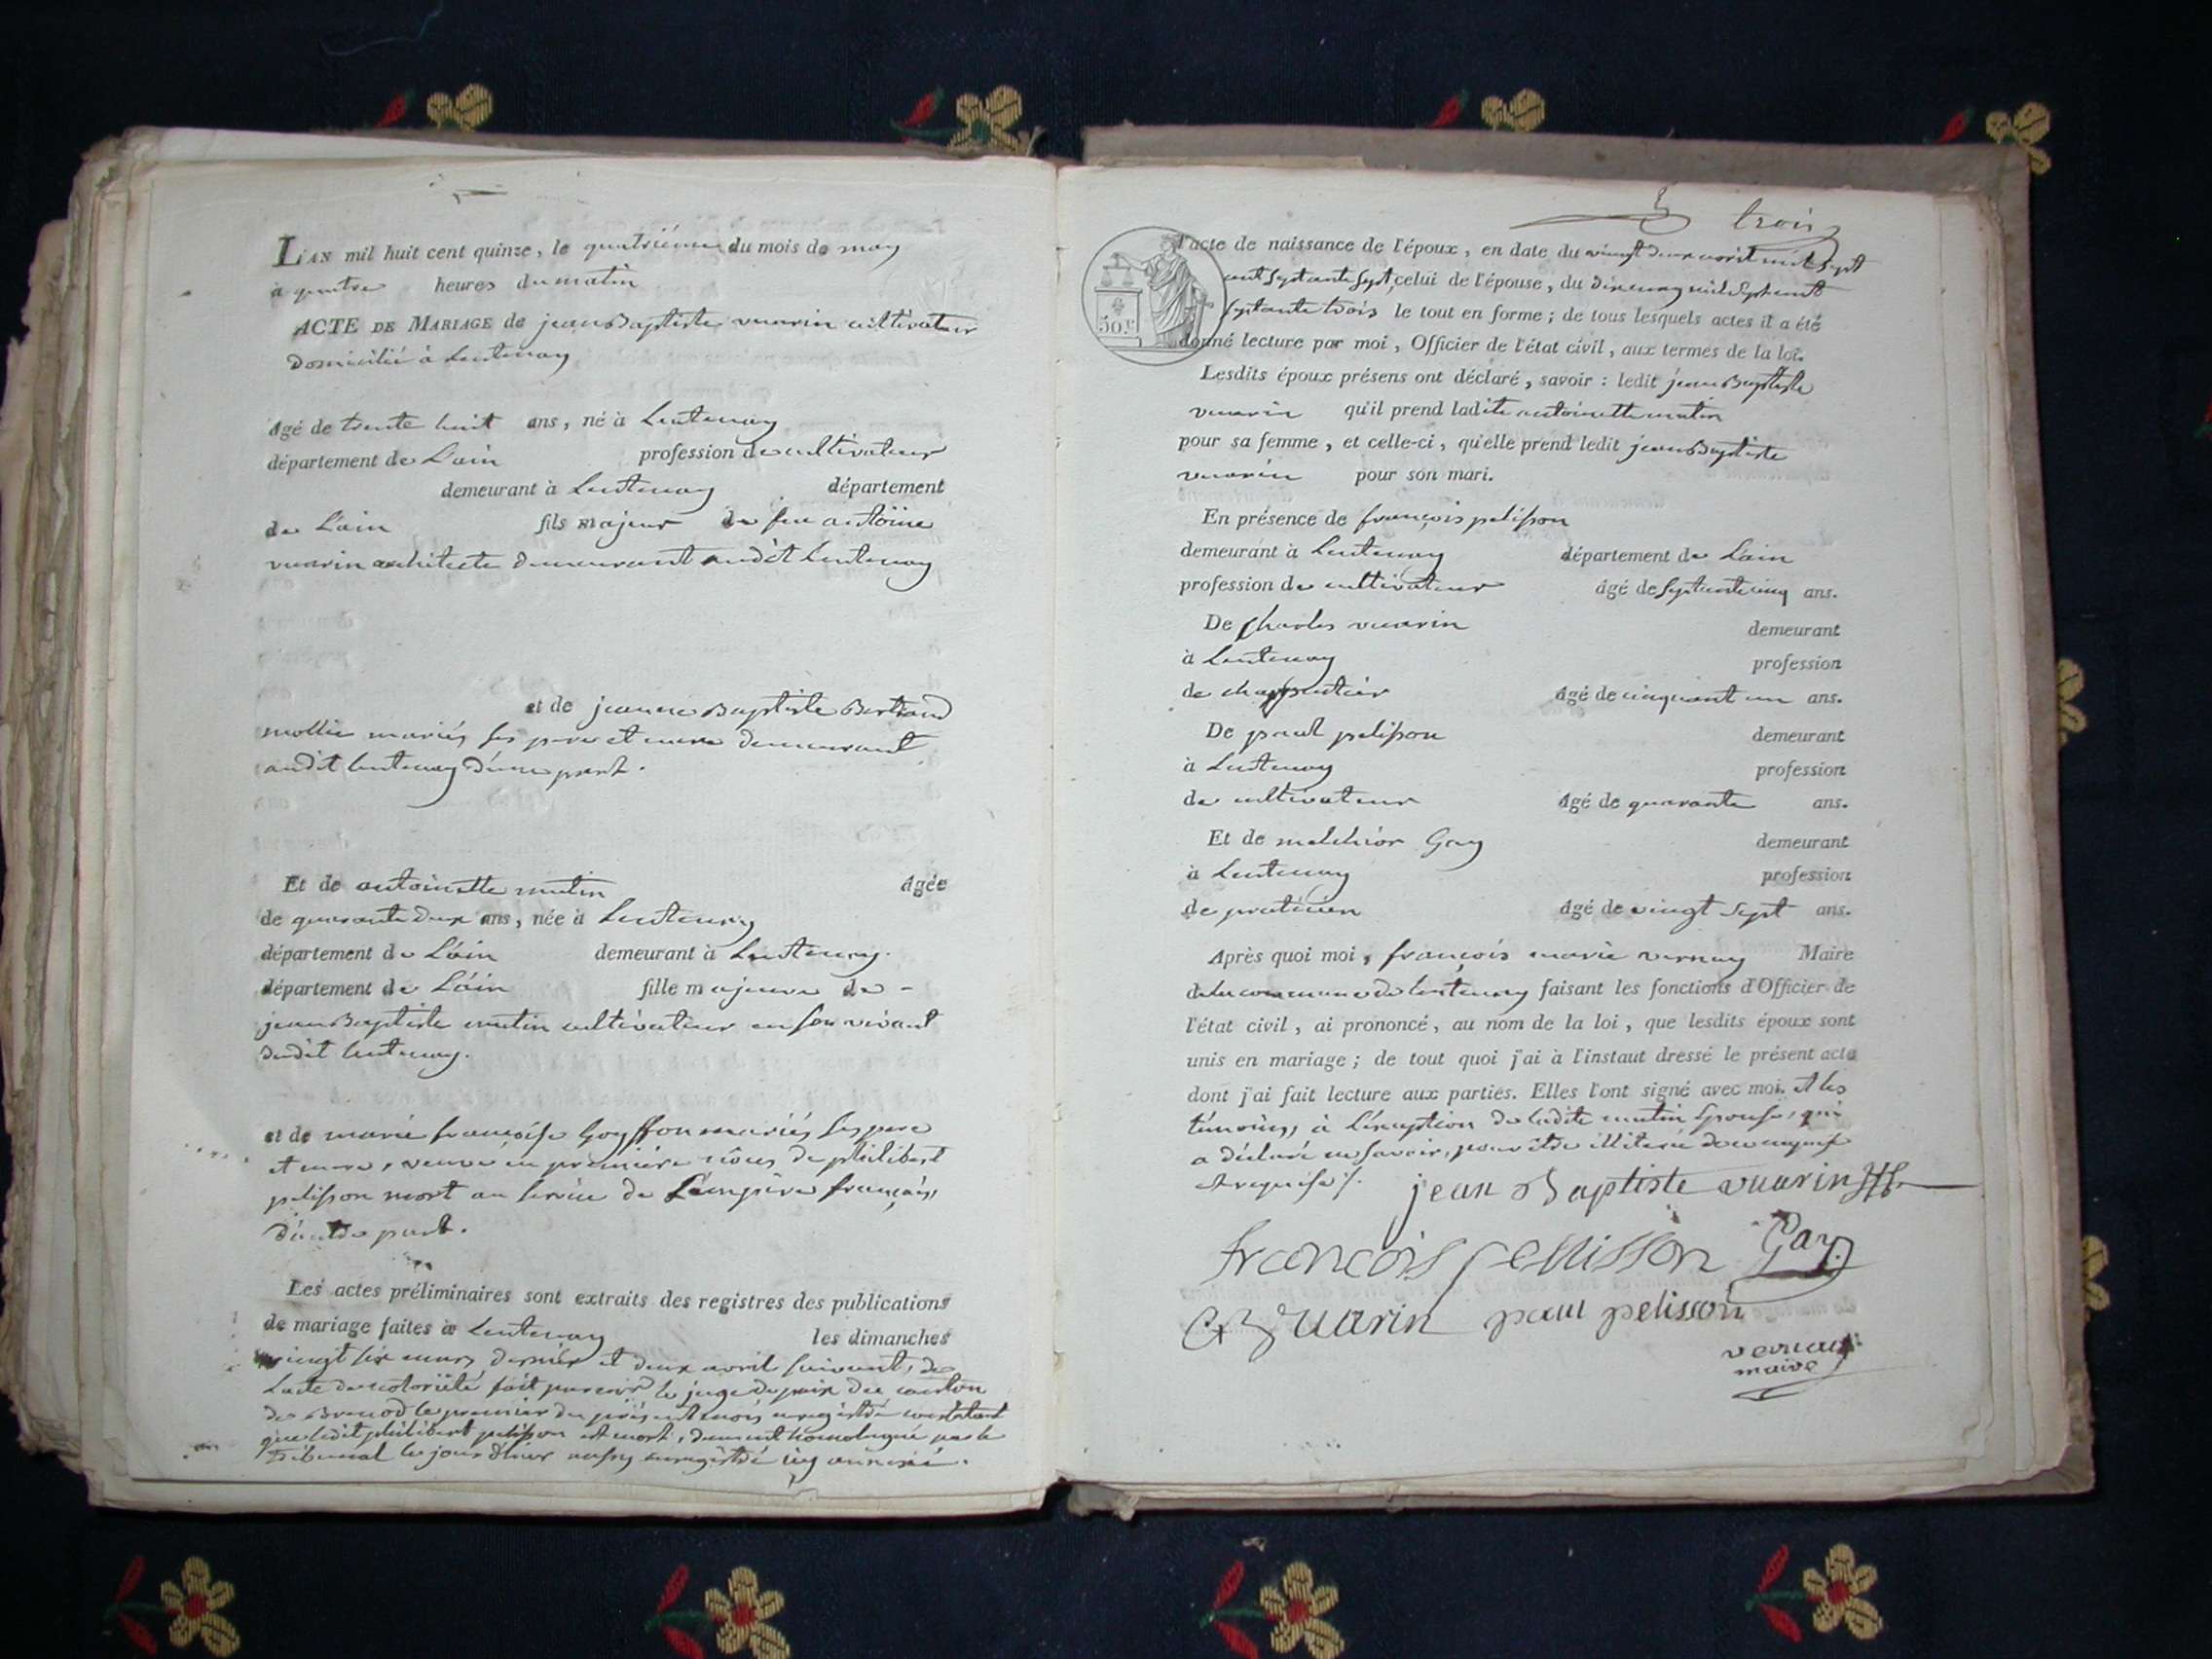 L'AN mil huit cent quinze, le quatriéme du mois de may
à quatre heures du matin
ACTE DE MARIAGE de jean Baptiste vuarin cultivateur
domicilié à Lentenay
âgé de trente huit ans, né à Lentenay
département de L'ain profession de cultivateur
demeurant à Lentenay département
de L'ain fils majeur de feu antoine
vuarin architecte demeurant audit Lentenay
et de jeanne Baptiste Bertrand
mollie mariés ses pere et mere demeurant
audit lentenay d'une part.
Et de antoinette mutin âgée
de quarante deux ans, née à Lentenay
département de L'ain demeurant à Lentenay.
département de L'ain fille majeure de -
jean Baptiste mutin cultivateur en son vivant
dudit lentenay.
et de marie françoise Goyffon mariés ses pere
et mere, veuve en premiére nôces de philibert
pelisson mort au service de L'empire français,
d'autre part.
Les actes préliminaires sont extraits des registres des publications
de mariage faites à Lentenay les dimanches
vingt six mars dernier et deux avril suivant, de
L'acte de notoriété fait par le juge de paix du canton
de Brenod le premier du présent mois enregistré constatant
que ledit philibert pelisson est mort, dument homologué par le
Tribunal le jour d'hier aussy enregistré icy annexé.
trois
l'acte de naissance de l'époux, en date du vingt deux avril mil sept
cent septante sept, celui de l'épouse, du dix may mil sept cent
septante trois le tout en forme; de tous lesquels actes il a été
donné lecture par moi, Officier de l'état civil, aux termes de la loi.
50 c.
Lesdits époux présens ont déclaré, savoir: ledit jean Baptiste
vuarin qu'il prend ladite antoinette mutin
pour sa femme, et celle-ci, qu'elle prend ledit jean Baptiste
vuarin pour son mari.
En présence de françois pelisson
demeurant à Lentenay département de L'ain
profession de cultivateur âgé de septante cinq ans.
De Charles vuarin demeurant
à Lentenay profession
de charpentier âgé de cinquant un ans.
De paul pelisson demeurant
à Lentenay profession
de cultivateur âgé de quarante ans.
Et de melchior Gay demeurant
à Lentenay profession
de praticien âgé de vingt sept ans.
Après quoi moi, françois marie vernay Maire
de la commune de lentenay faisant les fonctions d'Officier de
l'état civil, ai prononcé, au nom de la loi, que lesdits époux sont
unis en mariage; de tout quoi j'ai à l'instaut dressé le présent acte
dont j'ai fait lecture aux parties. Elles l'ont signé avec moi. et les
témoins, à l'éxception de ladite mutin épouse, qui
a déclaré ne savoir, pour être illiterée de ce enquise
et requise /.
jean Baptiste vuarin
francois pellisson Gay
vuarin paul pelisson
vernay
maire